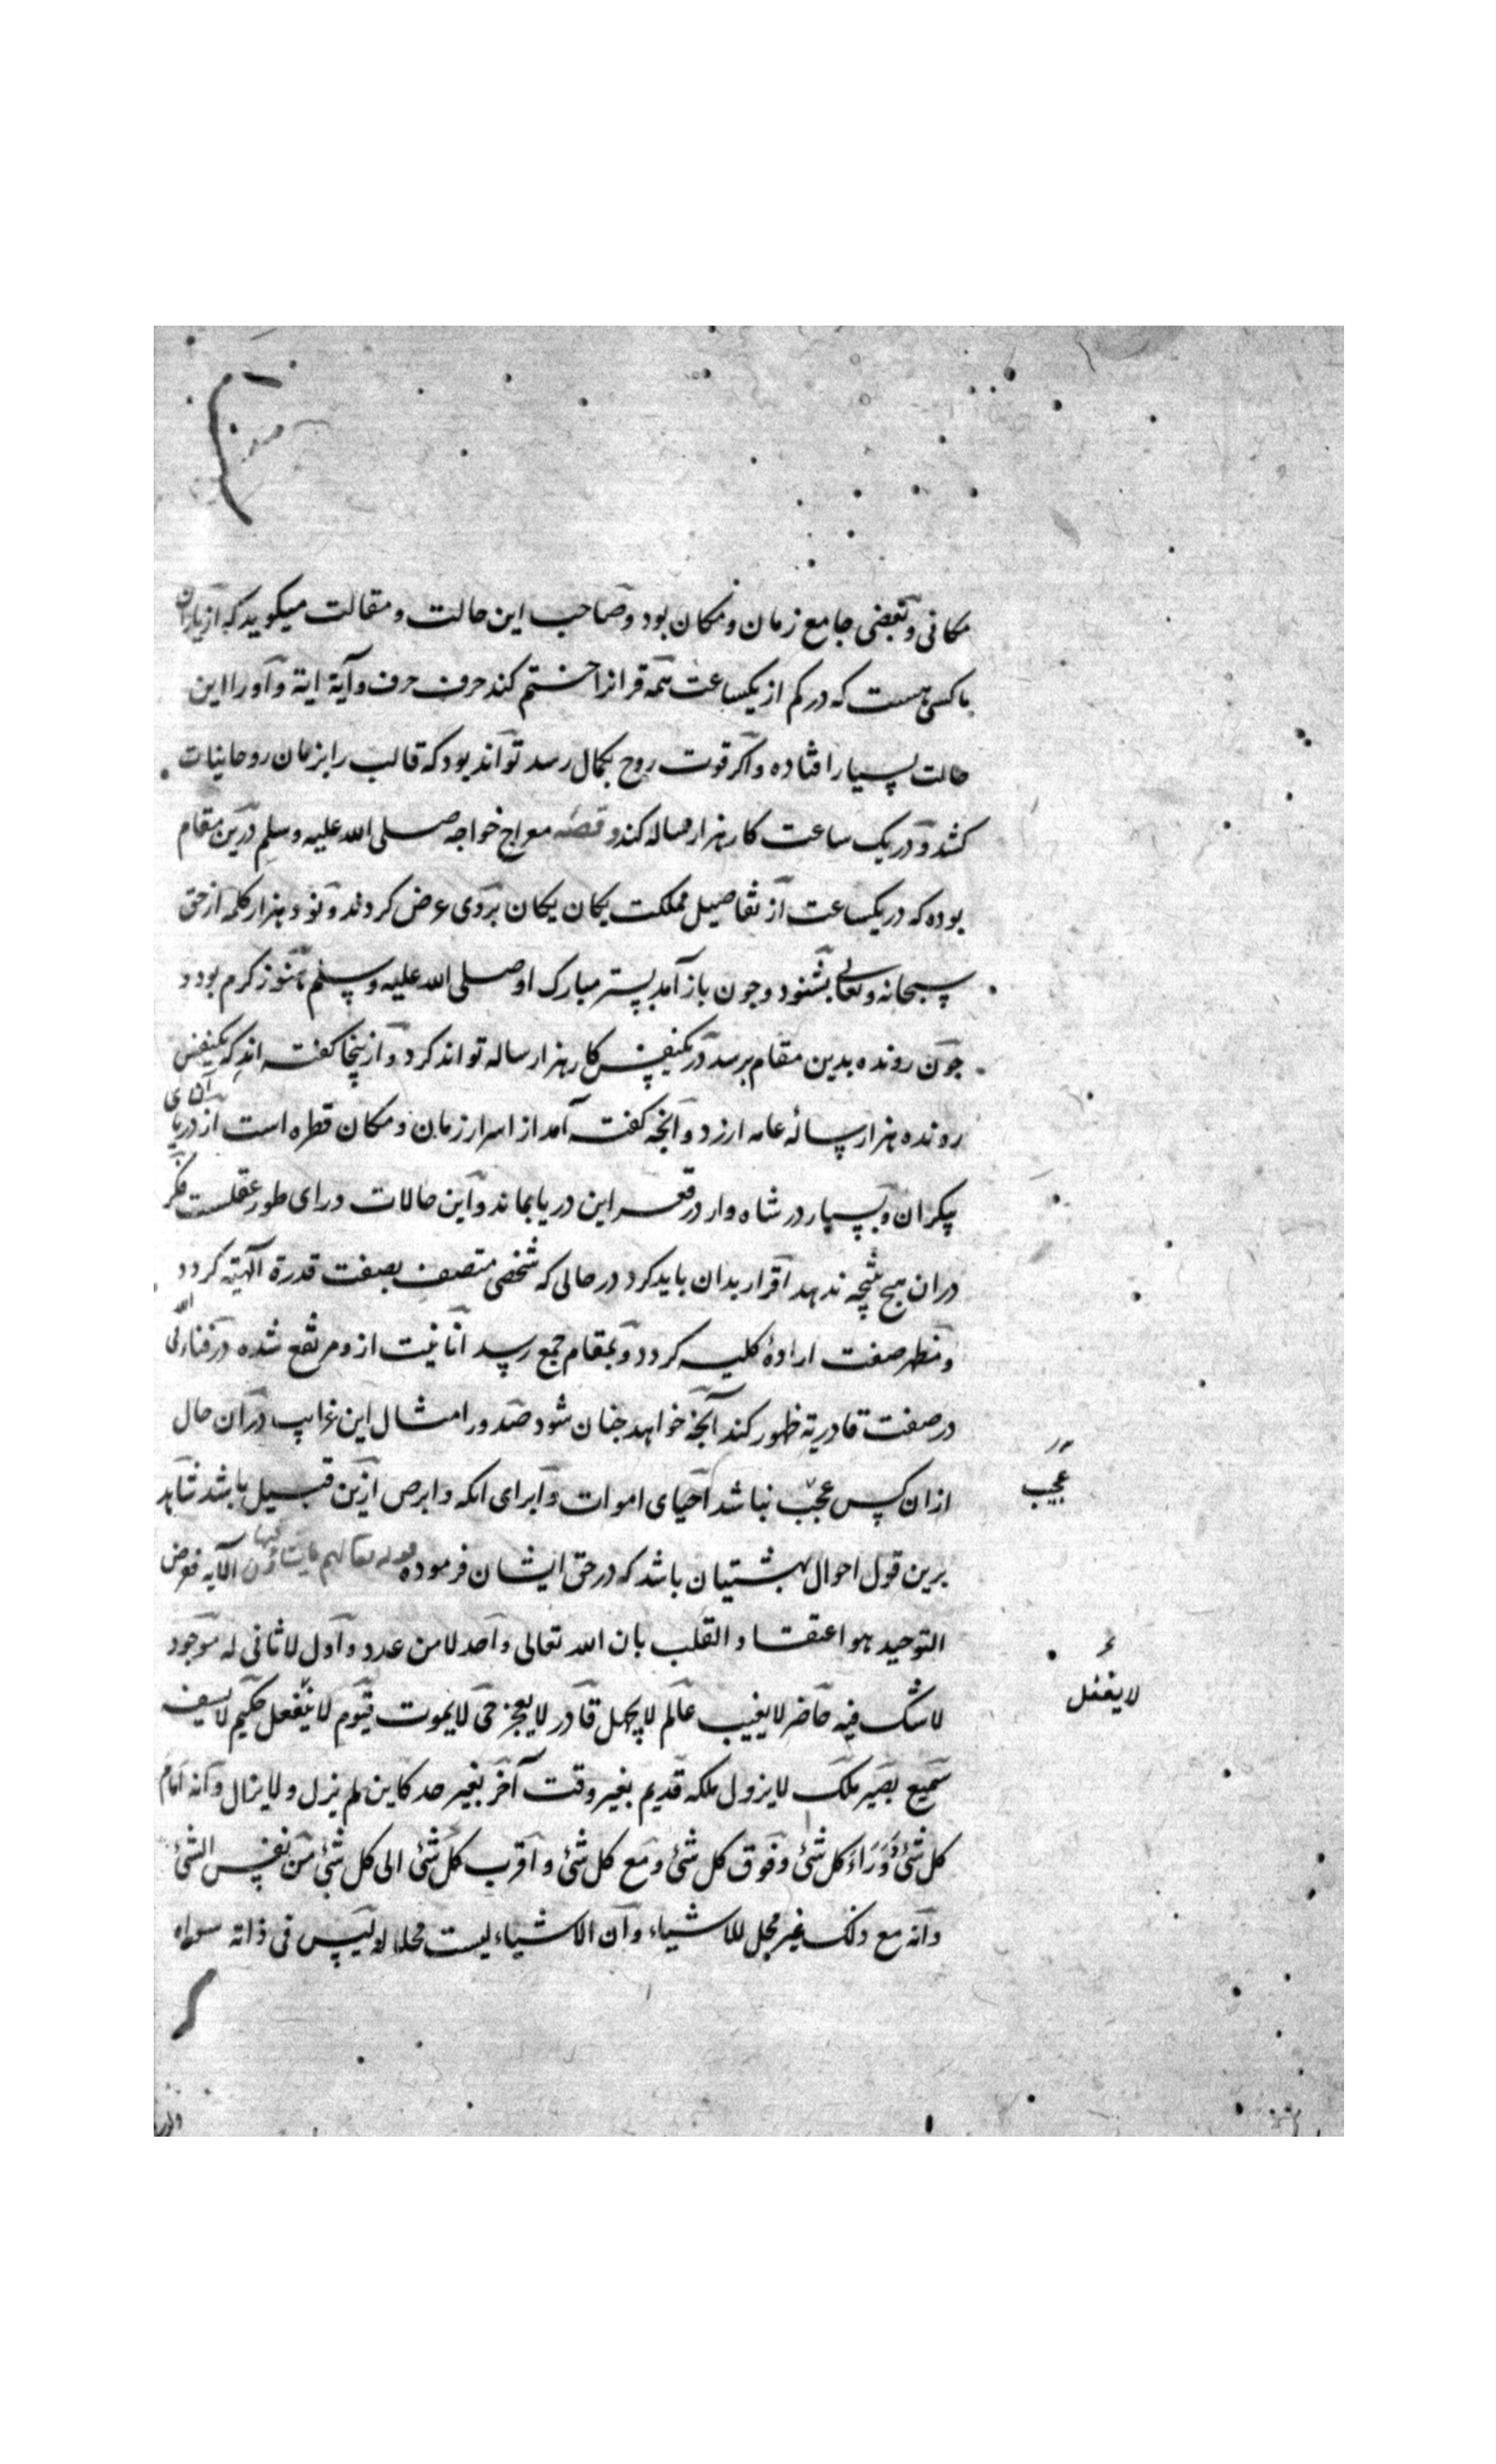 مکانی و بعضی جامع زمان و مکان بود و صاحب این حالت و مقالت میکوید که از یاران
ما کسی هست که در کم از یکساعت همه قرانرا ختم کند حرف حرف و آیة ایة و او را این
حالت بسیار افتاده و اکر قوت روح بکمال رسد تواند بود که قالب را بزمان روحانیات
کشد و در یک ساعت کار هزار ساله کند و قصهٔ معراج خواجه صلی الله علیه وسلم درین مقام
بوده که در یکساعت از تفاصیل مملکت یکان یکان بر وی عرض کردند و نود هزار کلمه از حق
سبحانه و تعالی بشنود و جون باز آمد بستر مبارک او صلی الله علیه وسلم هنوز کرم بود و
جون رونده بدین مقام برسد در یکنفس کار هزار ساله تواند کرد و ازینجا کفته اند که یکنفس
رونده هزار سالهٔ عامه ارزد و انجه کفته آمد از اسرار زمان و مکان قطره است از دریای
بیکران و بسیار در شاه وار در قعر این دریا بماند و این حالات ورای طور عقلست فکر
دران هیج نتیجه ندهد اقرار بدان باید کرد در حالی که شخصی متصف بصفت قدرة الهیه کردد
و مظهر صفت ارادهٔ کلیه کردد و بمقام جمع رسد انانیت ازو مرتفع شده در فناء الی الله
در صفت قادریة ظهور کند آنجه خواهد جنان شود صدور امثال این غرایب در آن حال
ازان کس عجب نباشد احیای اموات و ابرای اکمه و ابرص ازین قبیل باشد شاهد
عجب
برین قول احوال بهشتیان باشد که در حق ایشان فرموده قوله تعالی لهم ما یشاؤن فیها الآیه فوض
التوحید هو اعتقاد القلب بان الله تعالی واحد لا من عدد و اول لا ثانی له موجود
لا شک فیه حاضر لا یغیب عالم لا یجهل قادر لا یعجز حی لا یموت قیوم لا یغفل حکیم لا یسفه
لا یغفل
سمیع بصیر ملک لا یزول ملکه قدیم بغیر وقت آخر بغیر حد کاین لم یزل و لا یزال و انه امام
کل شئ و وراء کل شئ و فوق کل شئ و مع کل شئ و اقرب کل شئ الی کل شئ من نفس الشئ
و انه مع ذلک غیر محل للاشیاء و ان الاشیاء لیست محلا له لیس فی ذاته سواه